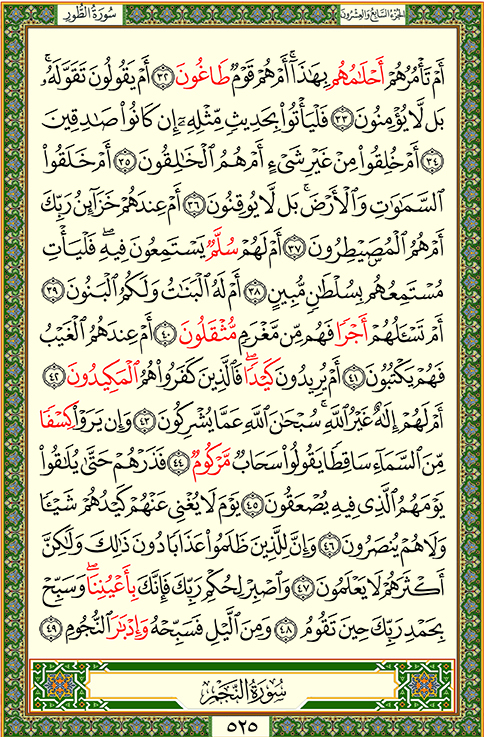 الجزء السابع والعشرون
سورة الطور
أَمْ تَأْمُرُهُمْ أَحْلَٰمُهُم بِهَٰذَآ ۚ أَمْ هُمْ قَوْمٌ طَاغُونَ ٣٢ أَمْ يَقُولُونَ تَقَوَّلَهُۥ ۚ
بَل لَّا يُؤْمِنُونَ ٣٣ فَلْيَأْتُوا۟ بِحَدِيثٍ مِّثْلِهِۦٓ إِن كَانُوا۟ صَٰدِقِينَ
٣٤ أَمْ خُلِقُوا۟ مِنْ غَيْرِ شَىْءٍ أَمْ هُمُ ٱلْخَٰلِقُونَ ٣٥ أَمْ خَلَقُوا۟
ٱلسَّمَٰوَٰتِ وَٱلْأَرْضَ ۚ بَل لَّا يُوقِنُونَ ٣٦ أَمْ عِندَهُمْ خَزَآئِنُ رَبِّكَ
أَمْ هُمُ ٱلْمُصَۣيْطِرُونَ ٣٧ أَمْ لَهُمْ سُلَّمٌ يَسْتَمِعُونَ فِيهِ ۖ فَلْيَأْتِ
مُسْتَمِعُهُم بِسُلْطَٰنٍ مُّبِينٍ ٣٨ أَمْ لَهُ ٱلْبَنَٰتُ وَلَكُمُ ٱلْبَنُونَ ٣٩
أَمْ تَسْـَٔلُهُمْ أَجْرًا فَهُم مِّن مَّغْرَمٍ مُّثْقَلُونَ ٤٠ أَمْ عِندَهُمُ ٱلْغَيْبُ
فَهُمْ يَكْتُبُونَ ٤١ أَمْ يُرِيدُونَ كَيْدًا ۖ فَٱلَّذِينَ كَفَرُوا۟ هُمُ ٱلْمَكِيدُونَ ٤٢
أَمْ لَهُمْ إِلَٰهٌ غَيْرُ ٱللَّهِ ۚ سُبْحَٰنَ ٱللَّهِ عَمَّا يُشْرِكُونَ ٤٣ وَإِن يَرَوْا۟ كِسْفًا
مِّنَ ٱلسَّمَآءِ سَاقِطًا يَقُولُوا۟ سَحَابٌ مَّرْكُومٌ ٤٤ فَذَرْهُمْ حَتَّىٰ يُلَٰقُوا۟
يَوْمَهُمُ ٱلَّذِى فِيهِ يُصْعَقُونَ ٤٥ يَوْمَ لَا يُغْنِى عَنْهُمْ كَيْدُهُمْ شَيْـًٔا
وَلَا هُمْ يُنصَرُونَ ٤٦ وَإِنَّ لِلَّذِينَ ظَلَمُوا۟ عَذَابًا دُونَ ذَٰلِكَ وَلَٰكِنَّ
أَكْثَرَهُمْ لَا يَعْلَمُونَ ٤٧ وَٱصْبِرْ لِحُكْمِ رَبِّكَ فَإِنَّكَ بِأَعْيُنِنَا ۖ وَسَبِّحْ
بِحَمْدِ رَبِّكَ حِينَ تَقُومُ ٤٨ وَمِنَ ٱلَّيْلِ فَسَبِّحْهُ وَإِدْبَٰرَ ٱلنُّجُومِ ٤٩
سُورَةُ النَّجْمِ
٥٢٥